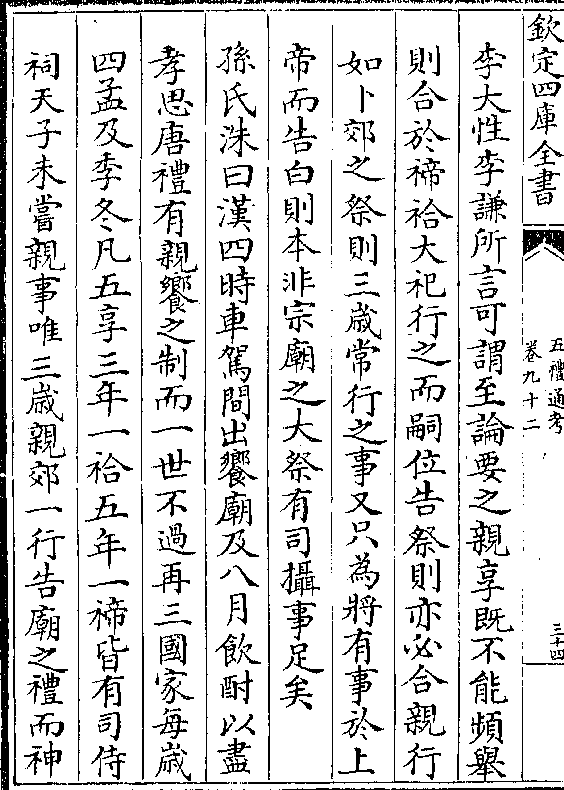 欽定四庫全書
五禮通考
卷九十二
三十四
李大性李謙所言可謂至論要之親享既不能頻舉
則合於禘祫大祀行之而嗣位告祭則亦必合親行
如卜郊之祭則三歳常行之事又只為將有事於上
帝而告白則本非宗廟之大祭有司攝事足矣
孫氏洙曰漢四時車駕間出饗廟及八月飲酎以盡
孝思唐禮有親饗之制而一世不過再三國家每歳
四孟及季冬凡五享三年一祫五年一禘皆有司侍
祠天子未嘗親事唯三歳親郊一行告廟之禮而神